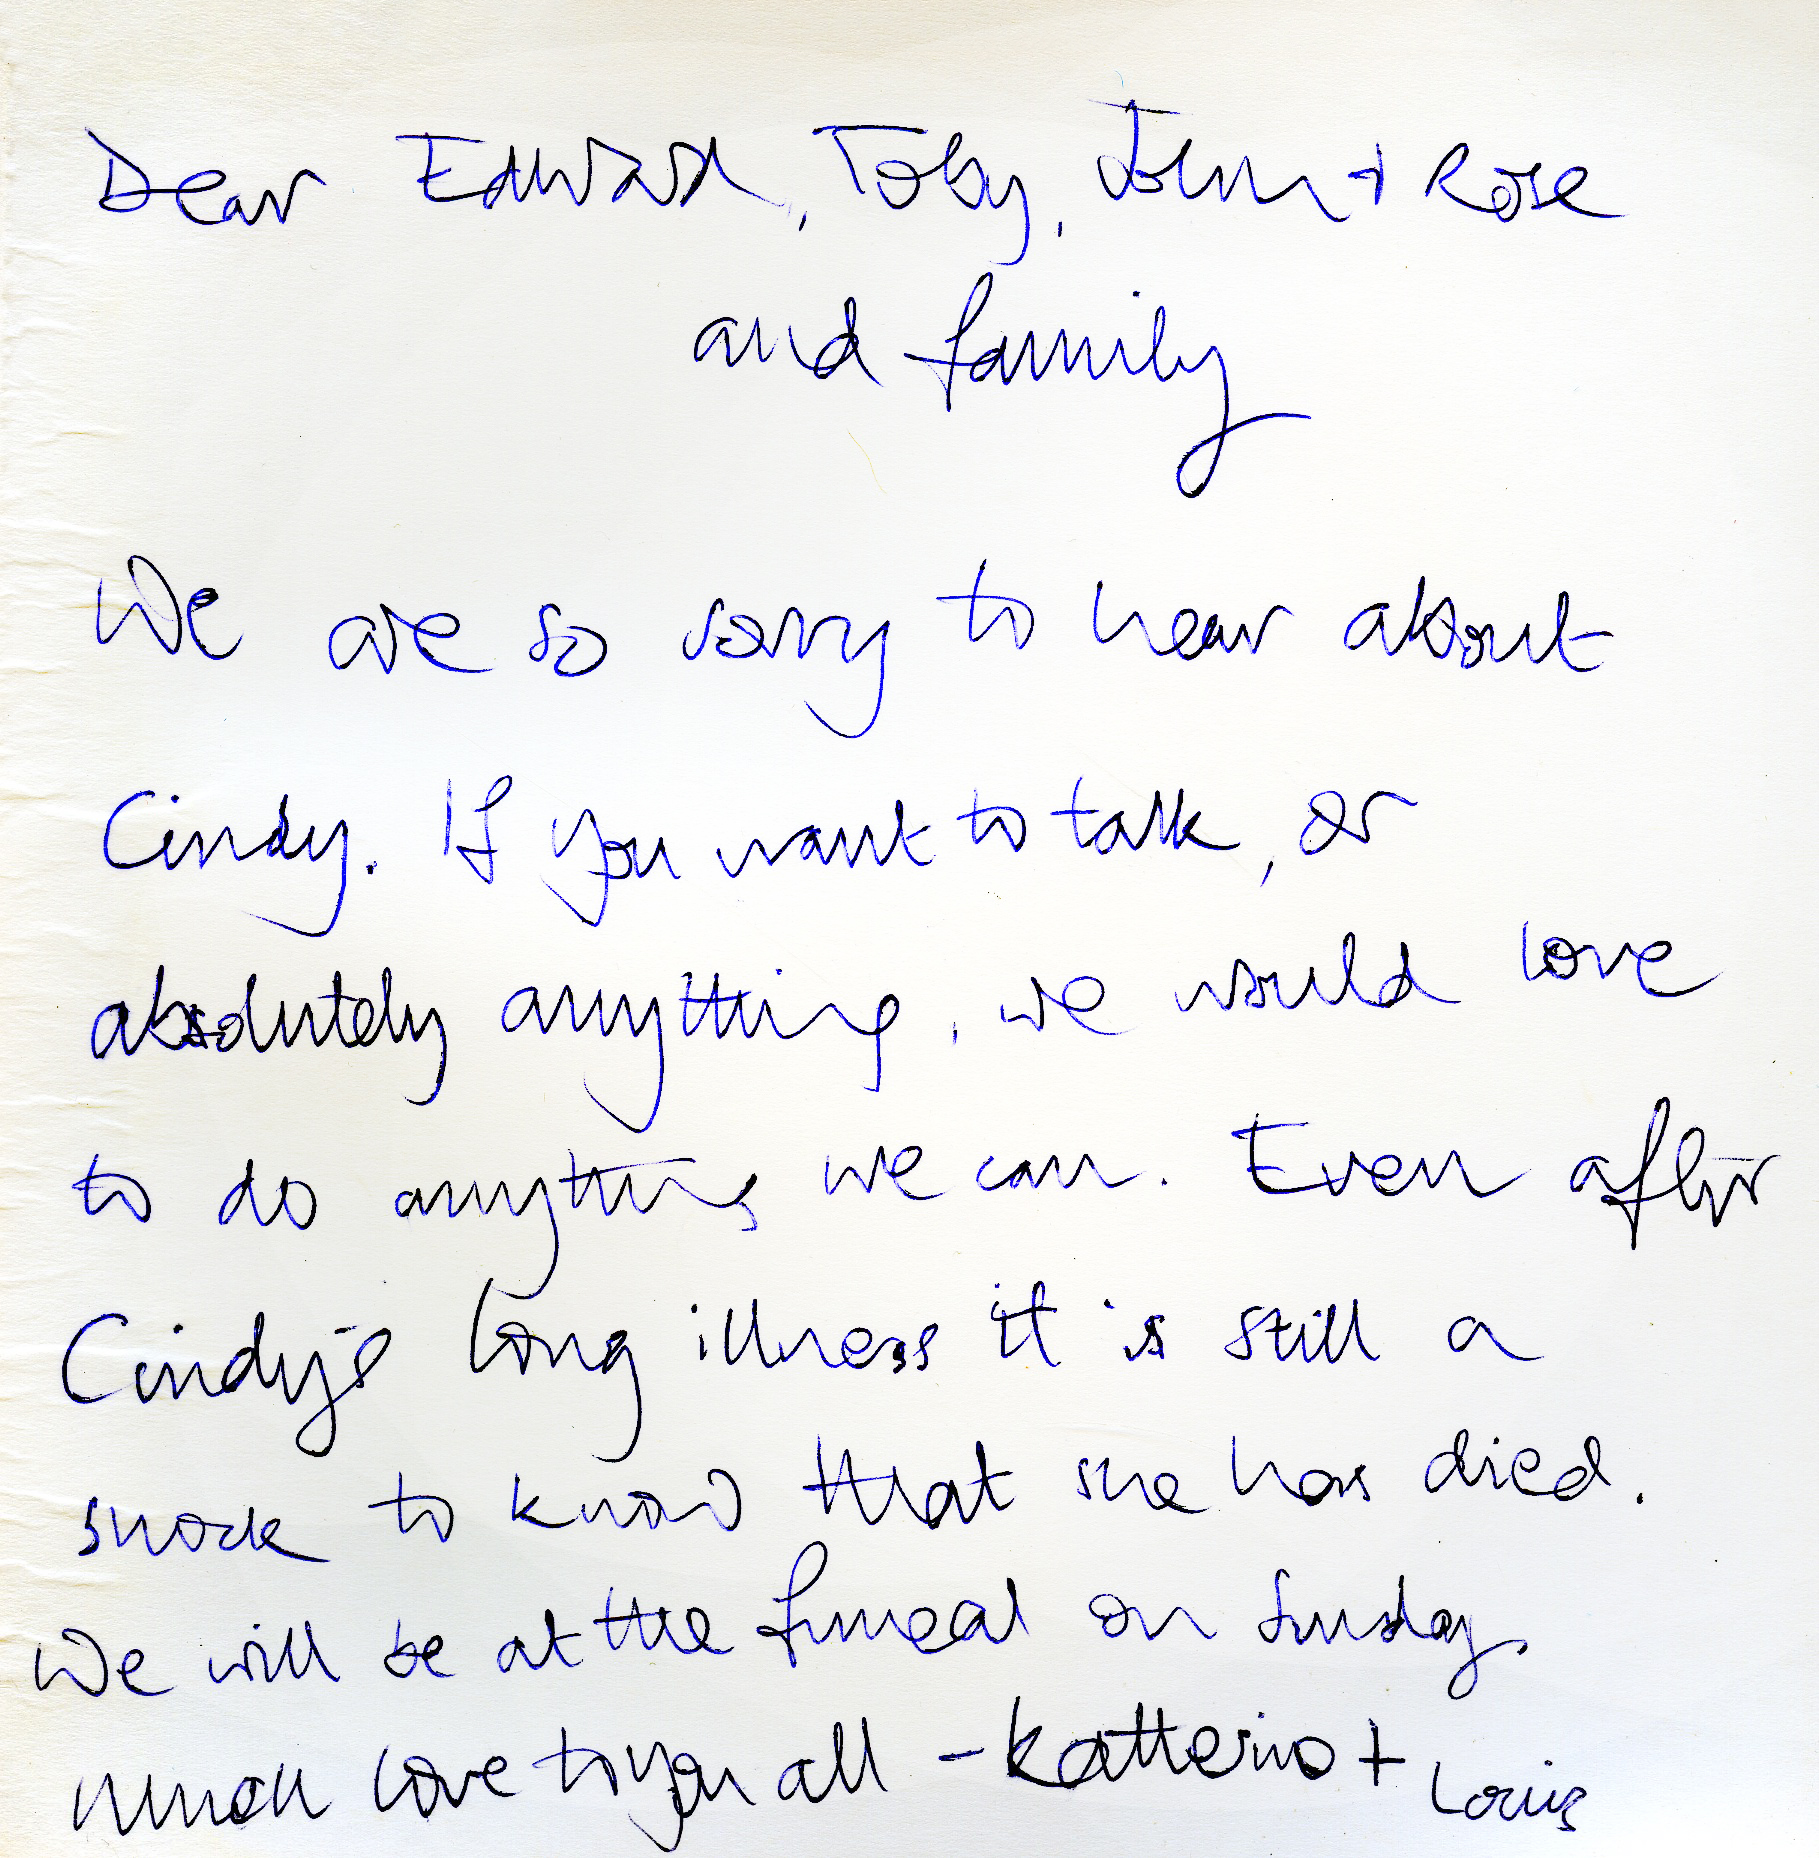 Dear Edward, Toby, John + Rose
and family
We are so sorry to hear about
Cindy. If you want to talk, or
absolutely anything, we would love
to do anything we can. Even after
Cindy's long illness it is still a
shock to know that she has died.
We will be at the funeral on Sunday.
Much love to you all - + Louis